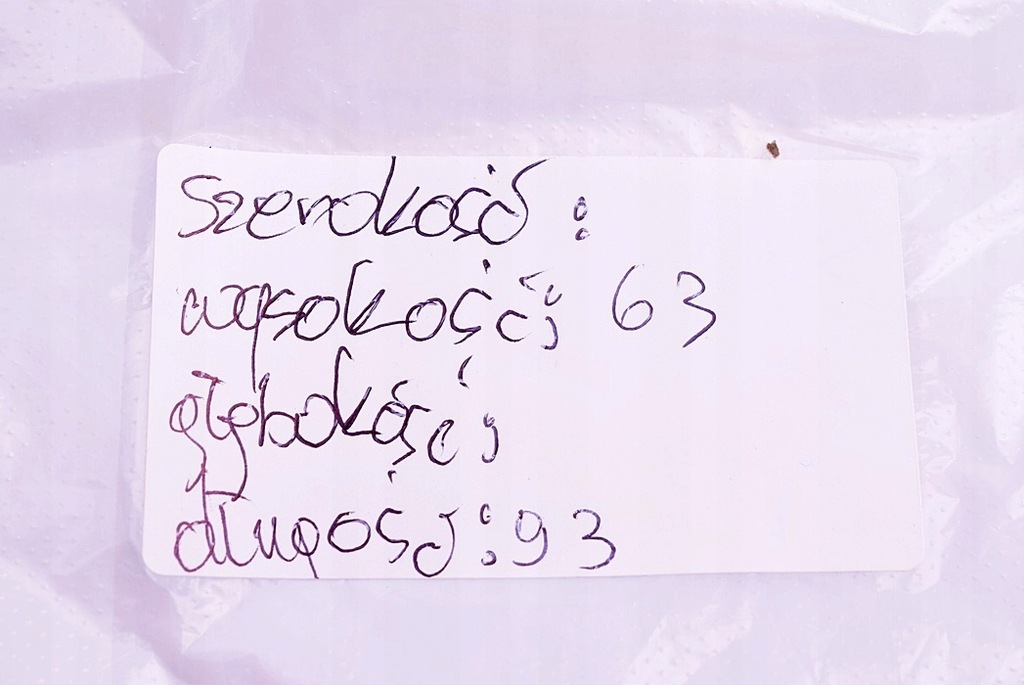 szerokość :
wysokość: 63
głębokość:
długość: 93